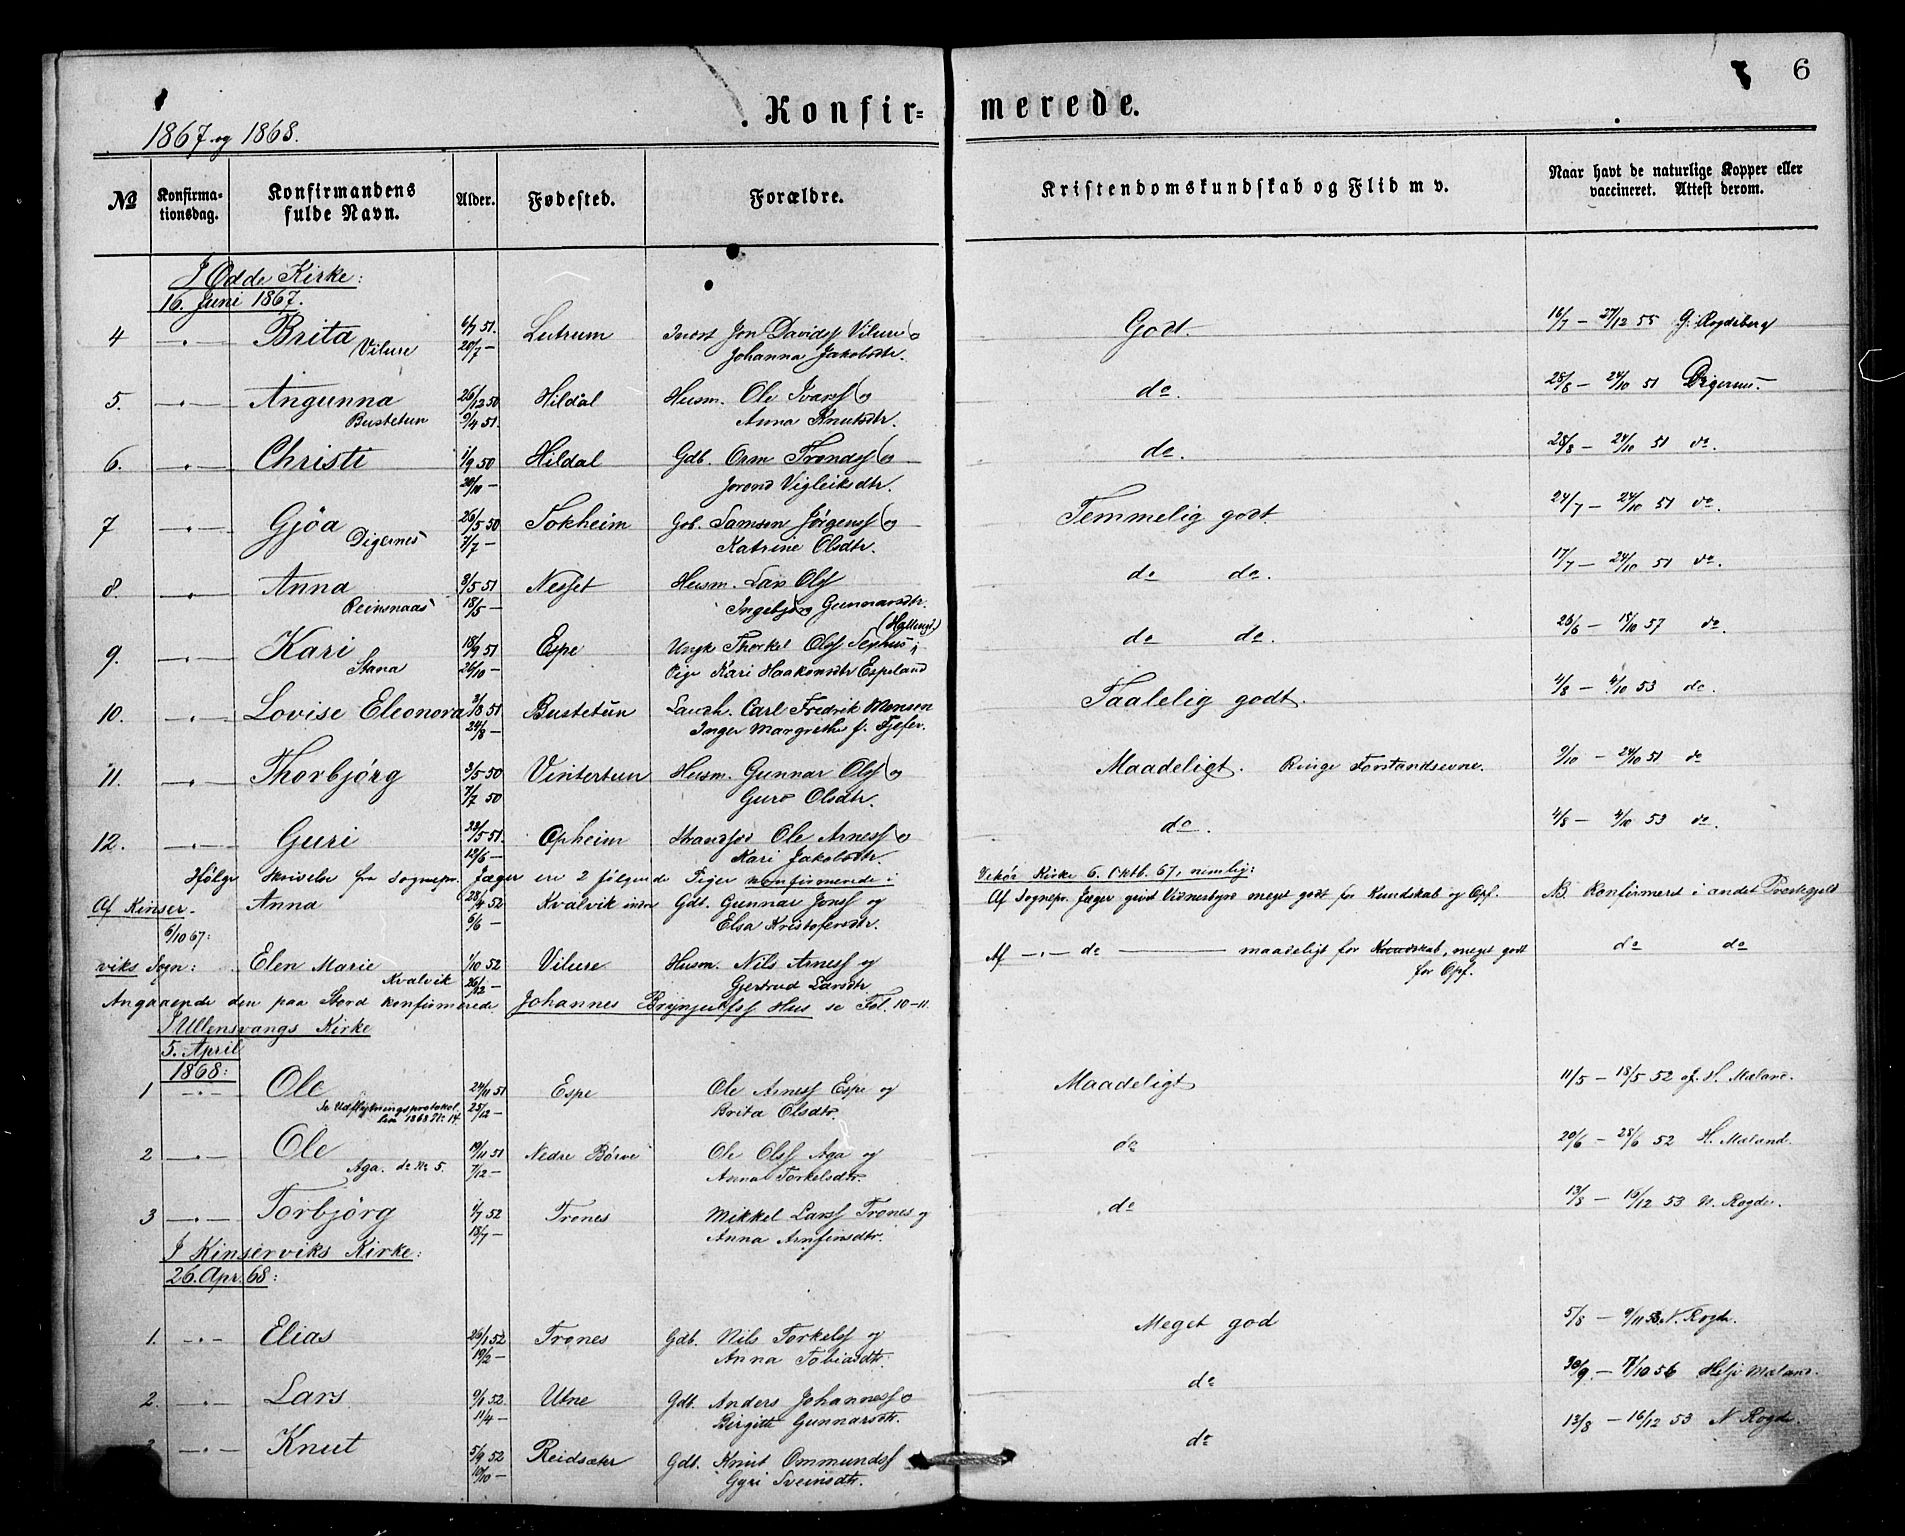 6
Konfir= merede.
1867 og 1868.
No Konfirma-tionsdag. Konfirmandens fulde Navn. Alder. Fødested. Forældre. Kristendomskundskab og Flid m v. Naar havt de naturlige Kopper eller vaccineret. Attest derom.
I Odde Kirke:
16. Juni 1867.
4 —"— Brita 6/7 51. Lutrum Jon Davidsf Vilure og Godt. 16/7 — 27/12 55
Vilure 20/7 — Johanna Jakobsdtr.
5. —"— Angunna 26/12 50 Hildal Husm. Ole Ivarsf og do. 28/8 — 24/10 51 Digernes.
Bustetun 9/4 51. Anna Knutsdtr.
6. —"— Christi 1/9 50 Hildal Gdb. Orm Trondsf og do. 28/8 — 24/10 51 do.
20/10 — Jorond Vigleiksdtr.
7 —"— Gjöa 26/5 50 Tokheim Gdb. Samson Jörgensf og Temmelig godt. 24/7 — 24/10 51 do.
Digernes 7/7 — Katrine Olsdtr.
8. —"— Anna 3/5 51 Nesset Husm. Lars Olsf do do. 17/7 — 24/10 51 do.
Reinsnaas 18/5 — Ingebjörg Gunnarsdtr.
9. —"— Kari 18/9 51 Espe Ungk Thorkel Olsf (Hallingd.) do do. 26/6 — 18/10 57 do
Stana 26/10 — Pige Kari Haakonsdtr Espeland
10. —"— Lovise Eleonora 51 Bustetun Carl Fredrik Monsen Taalelig godt. 4/8 — 4/10 53 do.
24/8 — Inger Margrethe f.
11. —"— Thorbjörg 3/5 50 Vintertun Husm. Gunnar Olsf og Maadeligt. Ringe Forstandsevne. 9/10 — 24/10 51 do
7/7 50 Guro Olsdtr.
12. —"— Guri 22/5 51. Opheim Strandsid Ole Arnesf og do. 4/8 — 4/10 53 do.
12/6 — Kari Jakobsdtr.
Ifölge Skrivelse fra Sognepr. Jæger ere 2 fölgende Piger konfirmerede i Vikör Kirke 6. Oktb. 67, nemlig:
Af Kinser- Anna 28/4 52 Kvalvik indre Gdb. Gunnar Jonsf og Af Sognepr. Jæger givet Vidnesbyrd meget godt for Kundskab og Opf. NB. Konfirmert i andet Prestegjeld
6/10 67: 6/6 — Elsa Kristofersdtr.
viks Sogn: Elen Marie 1/10 52 Vilure Husm. Nils Arnesf og Af —"— do — maadeligt for Kundskab, meget godt do do
Kvalvik 26/12 — Gjertrud Larsdtr for Opf.
Angaaende den paa Stord konfirmerede Johannes Brynjulfsf Hus se Fol. 10-11.
I Ullensvangs Kirke
5. April
1868:
1 —"— Ole 24/11 51 Espe Ole Arnesf Espe og Maadeligt 11/5 — 18/5 52 af H. Mæland.
Se Udflytningsprotokol-len 1868 No. 14. 25/12 — Brita Olsdtr.
2 —"— Ole 19/11 51 Nedre Börve Ole Olsf Aga og do 20/6 — 28/6 52 H. Mæland.
Aga. do No 5. 7/12 — Anna Torkelsdtr.
3 —"— Torbjörg 1/7 52 Trones Mikkel Larsf Trones og do 13/8 — 16/12 53 N. Rogde.
18/7 — Anna Arnfinsdtr.
I Kinserviks Kirke:
26. Apr. 68:
1. —"— Elias 26/1 52 Trones Gdb. Nils Torkelsf og Meget god 5/8 — 9/11 53 N. Rogde.
19/2 — Anna Tobiasdtr.
2. —"— Lars 9/1 52. Utne Gdb. Anders Johannesf og do 30/9. — 7/10 56 Helje Mæland.
11/4 — Birgitte Gunnarsdtr.
3 —"— Knut 5/9 52 Reidsæter Gdb. Knut Ommundsf do 13/8 — 16/12 53 N Rogde.
10/10 — Gyri Sveinsdtr.